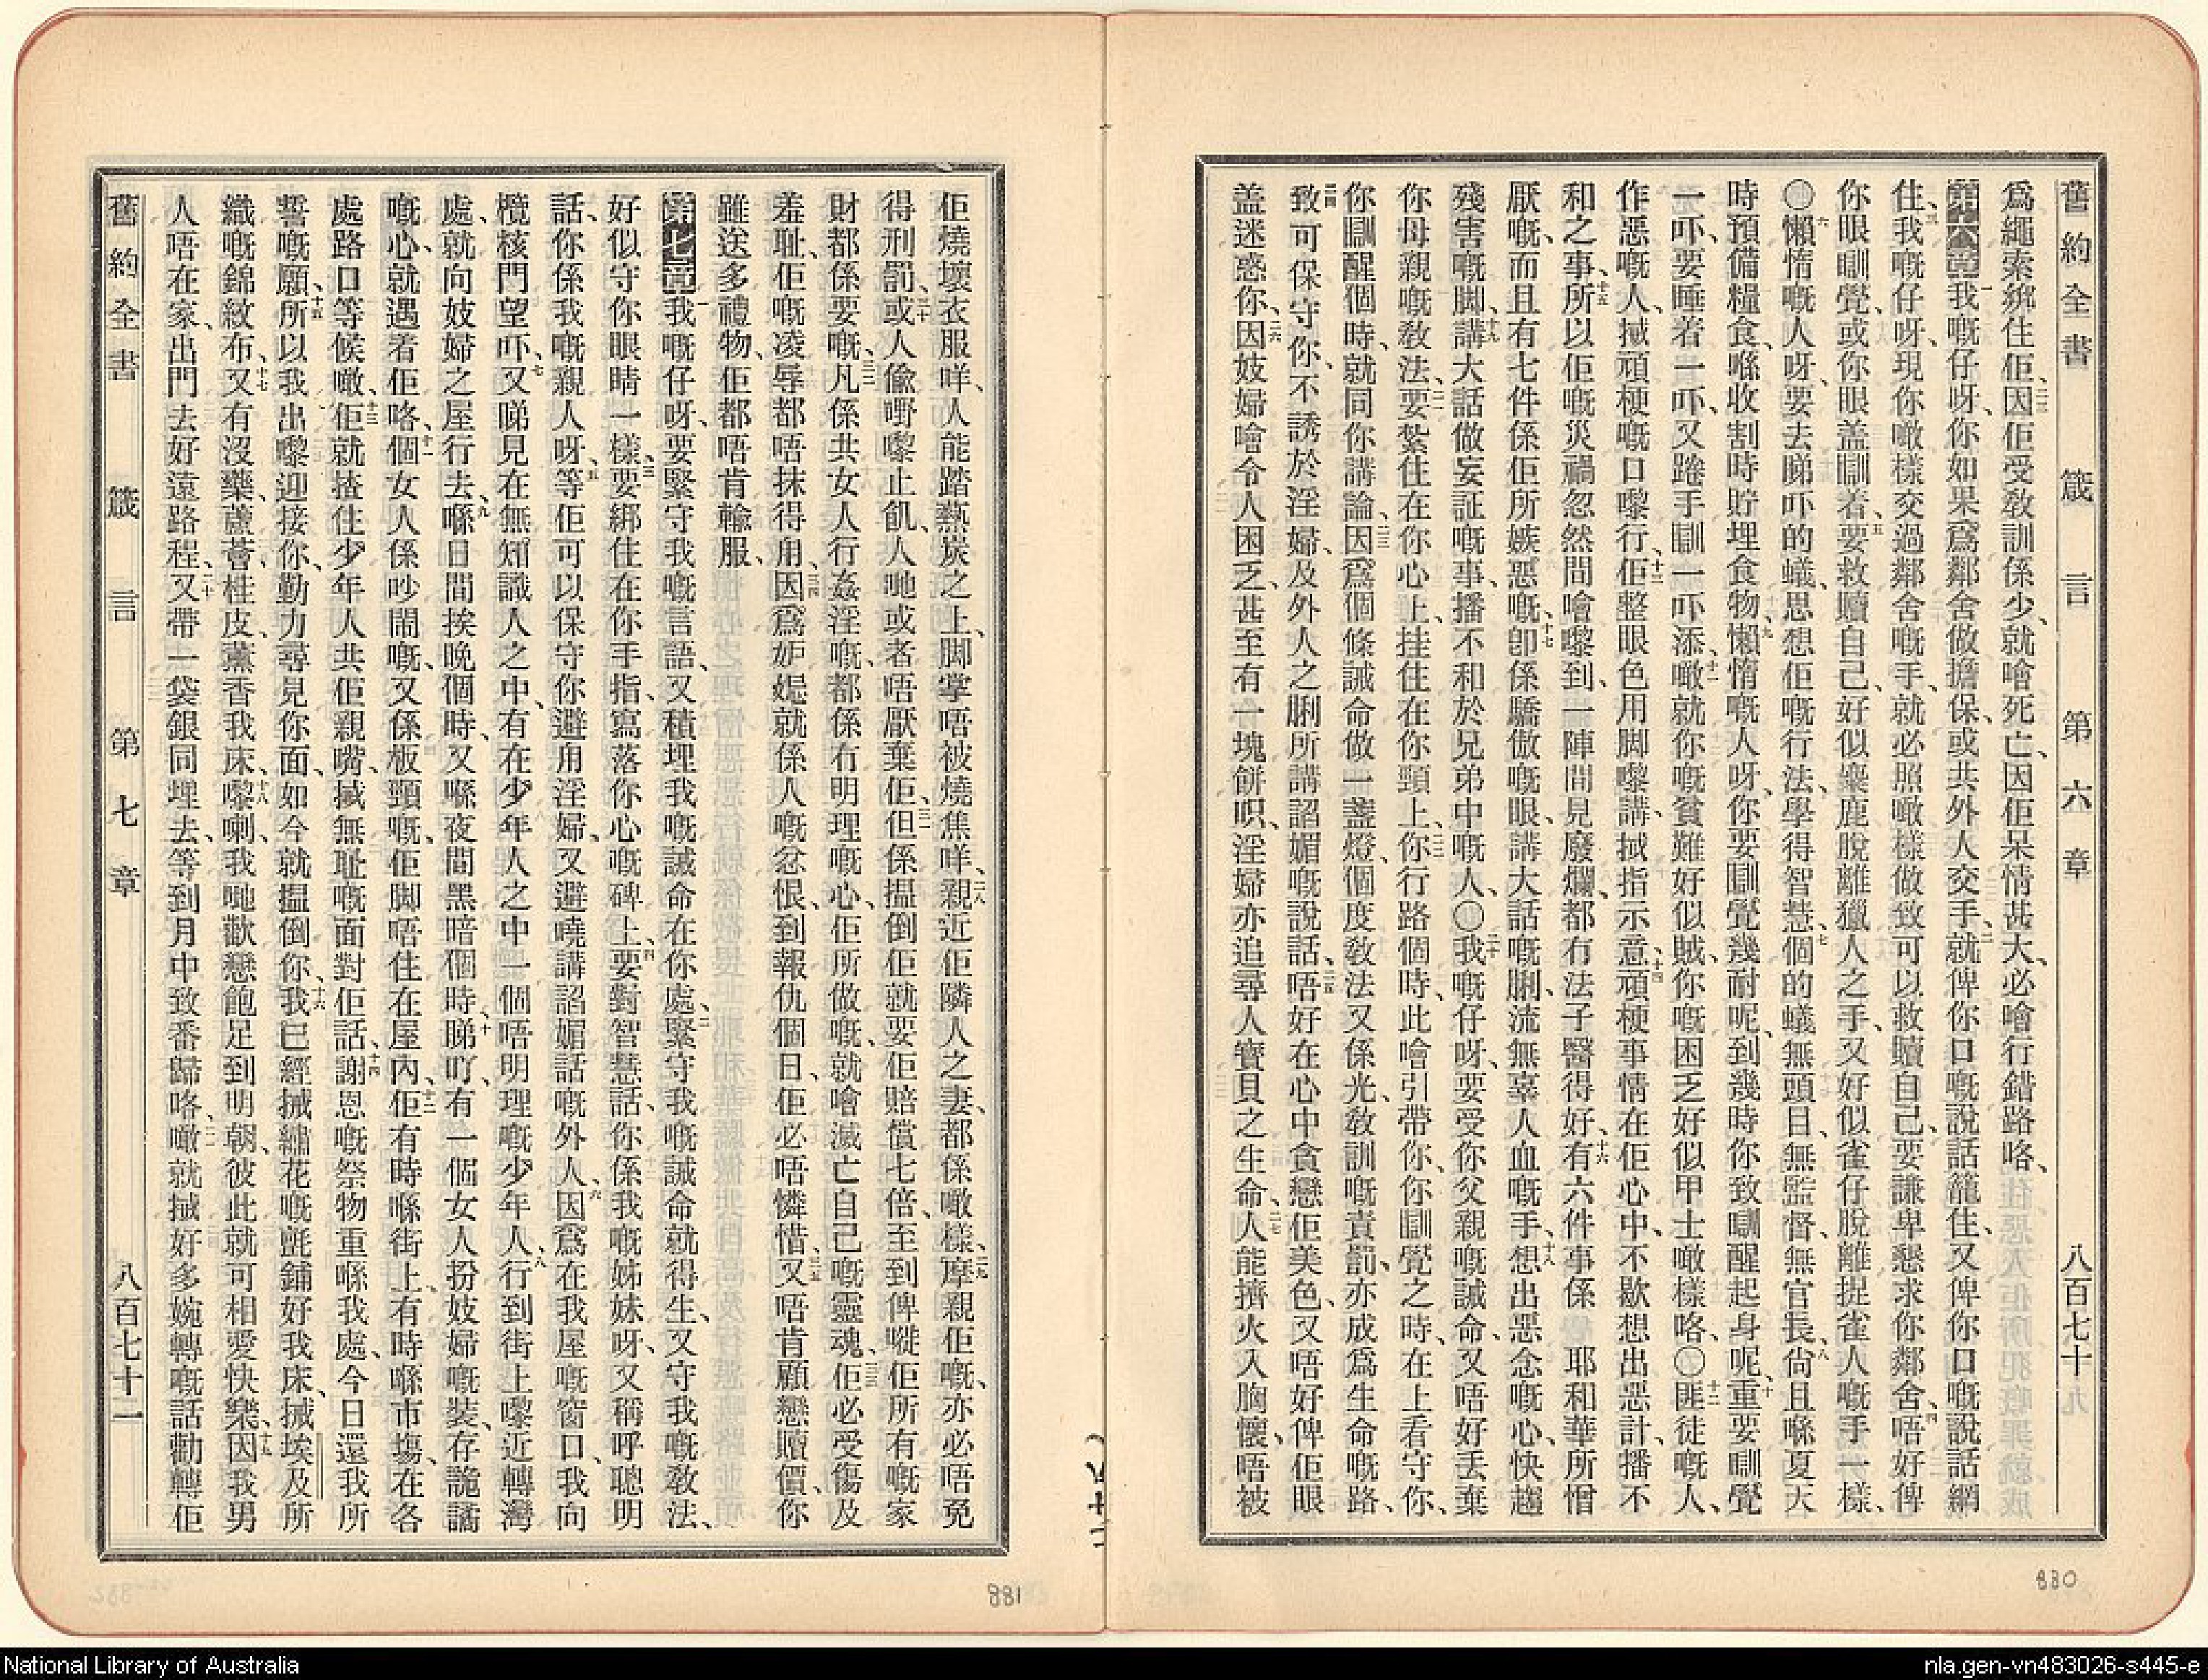 舊約全書 箴言 第六章 八百七十
為繩索綁住佢、二三因佢受教訓係少、就噲死亡、因佢呆情甚大、必噲行錯路咯、
第六章一我嘅仔呀、你如果為鄰舍做擔保、或共外人交手、二就俾你口嘅說話籠住、又俾你口嘅說話綑
住、三我嘅仔呀、現你噉樣交過鄰舍嘅手、就必照噉樣做致可以救贖自己、要謙卑懇求你鄰舍、四唔好俾
你眼瞓覺、或你眼盖瞓着、五要救贖自己、好似麖鹿脫離獵人之手、又好似雀仔脫離捉雀人嘅手一樣、
〇六懶惰嘅人呀、要去睇吓的蟻、思想佢嘅行法、學得智慧、七個的蟻無頭目、無監督、無官長、八尙且喺夏天
時預備糧食、喺收割時貯埋食物、九懶惰嘅人呀、你要瞓覺幾耐呢、到幾時你致瞓醒起身呢、十重要瞓覺
一吓、要睡着一吓、又踡手瞓一吓添、十一噉就你嘅貧難好似賊、你嘅困乏好似甲士噉樣咯、〇十二匪徒嘅人、
作惡嘅人、搣頑梗嘅口嚟行、十三佢整眼色用脚嚟講、搣指示意、十四頑梗事情在佢心中、不歇想出惡計、播不
和之事、十五所以佢嘅災禍忽然間噲嚟到、一陣間見廢爛、都有法子醫得好、十六有六件事係 耶和華所憎
厭嘅、而且有七件係佢所嫉惡嘅、十七卽係驕傲嘅眼、講大話嘅脷、流無辜人血嘅手、十八想出惡念嘅心、快趨
殘害嘅脚、十九講大話做妄証嘅事、播不和於兄弟中嘅人、〇二十我嘅仔呀、要受你父親嘅誡命、又唔好丢棄
你母親嘅教法、二一要紮住在你心上、挂住在你頸上、二二你行路個時、此噲引帶你、你瞓覺之時、在上看守你、
你瞓醒個時、就同你講論、二三因為個條誡命做一盞燈、個度教法又係光、教訓嘅責罰、亦成為生命嘅路、
二四致可保守你、不誘於淫婦、及外人之脷所講諂媚嘅說話、二五唔好在心中貪戀佢美色、又唔好俾佢眼
盖迷惑你、二六因妓婦噲令人困乏、甚至有一塊餅呮、淫婦亦追尋人寶貝之生命、二七人能擠火入胸懷、唔被
880
佢燒壞衣服咩、人能踏熱炭之上、脚掌唔被燒焦咩、二八親近佢隣人之妻、都係噉樣、二九摩親佢嘅、亦必唔免
得刑罰、三十或人偸嘢嚟止飢、人哋或者唔厭棄佢、三一但係搵倒佢就要佢賠償七倍、至到俾嘥佢所有嘅家
財都係要嘅、三二凡係共女人行姦淫嘅、都係冇明理嘅心、佢所做嘅、就噲滅亡自己嘅靈魂、三三佢必受傷及
羞耻、佢嘅凌辱都唔抹得甪、三四因為妒媢就係人嘅忿恨、到報仇個日、佢必唔憐惜、三五又唔肯顧戀贖價、你
雖送多禮物、佢都唔肯輸服、
第七章一我嘅仔呀、要緊守我嘅言語、又積埋我嘅誡命在你處、二緊守我嘅誡命就得生、又守我嘅教法、
好似守你眼睛一樣、三要綁住在你手指、寫落你心嘅碑上、四要對智慧話、你係我嘅姊妹呀、又稱呼聰明
話、你係我嘅親人呀、五等佢可以保守你避甪淫婦、又避嘵講諂媚話嘅外人、六因為在我屋嘅窗口、我向
欖核門望吓、七又睇見在無知識人之中、有在少年人之中一個唔明理嘅少年人、八行到街上嚟近轉灣
處、就向妓婦之屋行去、九喺日間挨晚個時、又喺夜間黑暗個時、十睇吖、有一個女人扮妓婦嘅裝、存詭譎
嘅心、就遇着佢咯、十一個女人係吵鬧嘅、又係板頸嘅、佢脚唔住在屋內、十二佢有時喺街上、有時喺市塲、在各
處路口等候噉、十三佢就揸住少年人共佢親嘴、搣無耻嘅面對佢話、十四謝恩嘅祭物重喺我處、今日還我所
誓嘅願、十五所以我出嚟迎接你、勤力尋見你面、如今就搵倒你、十六我已經搣繡花嘅氈鋪好我床、搣埃及所
織嘅錦紋布、十七又有沒藥、蘆薈、桂皮、薰香我床、十八嚟喇、我哋歡戀飽足到明朝、彼此就可相愛快樂、十九因我男
人唔在家、出門去好遠路程、二十又帶一袋銀同埋去、等到月中致番歸咯、二一噉就搣好多婉轉嘅話勸轉佢
舊約全書 箴言 第七章 八百七十一
881
National Library of Australia
nla.gen-vn483026-s445-e